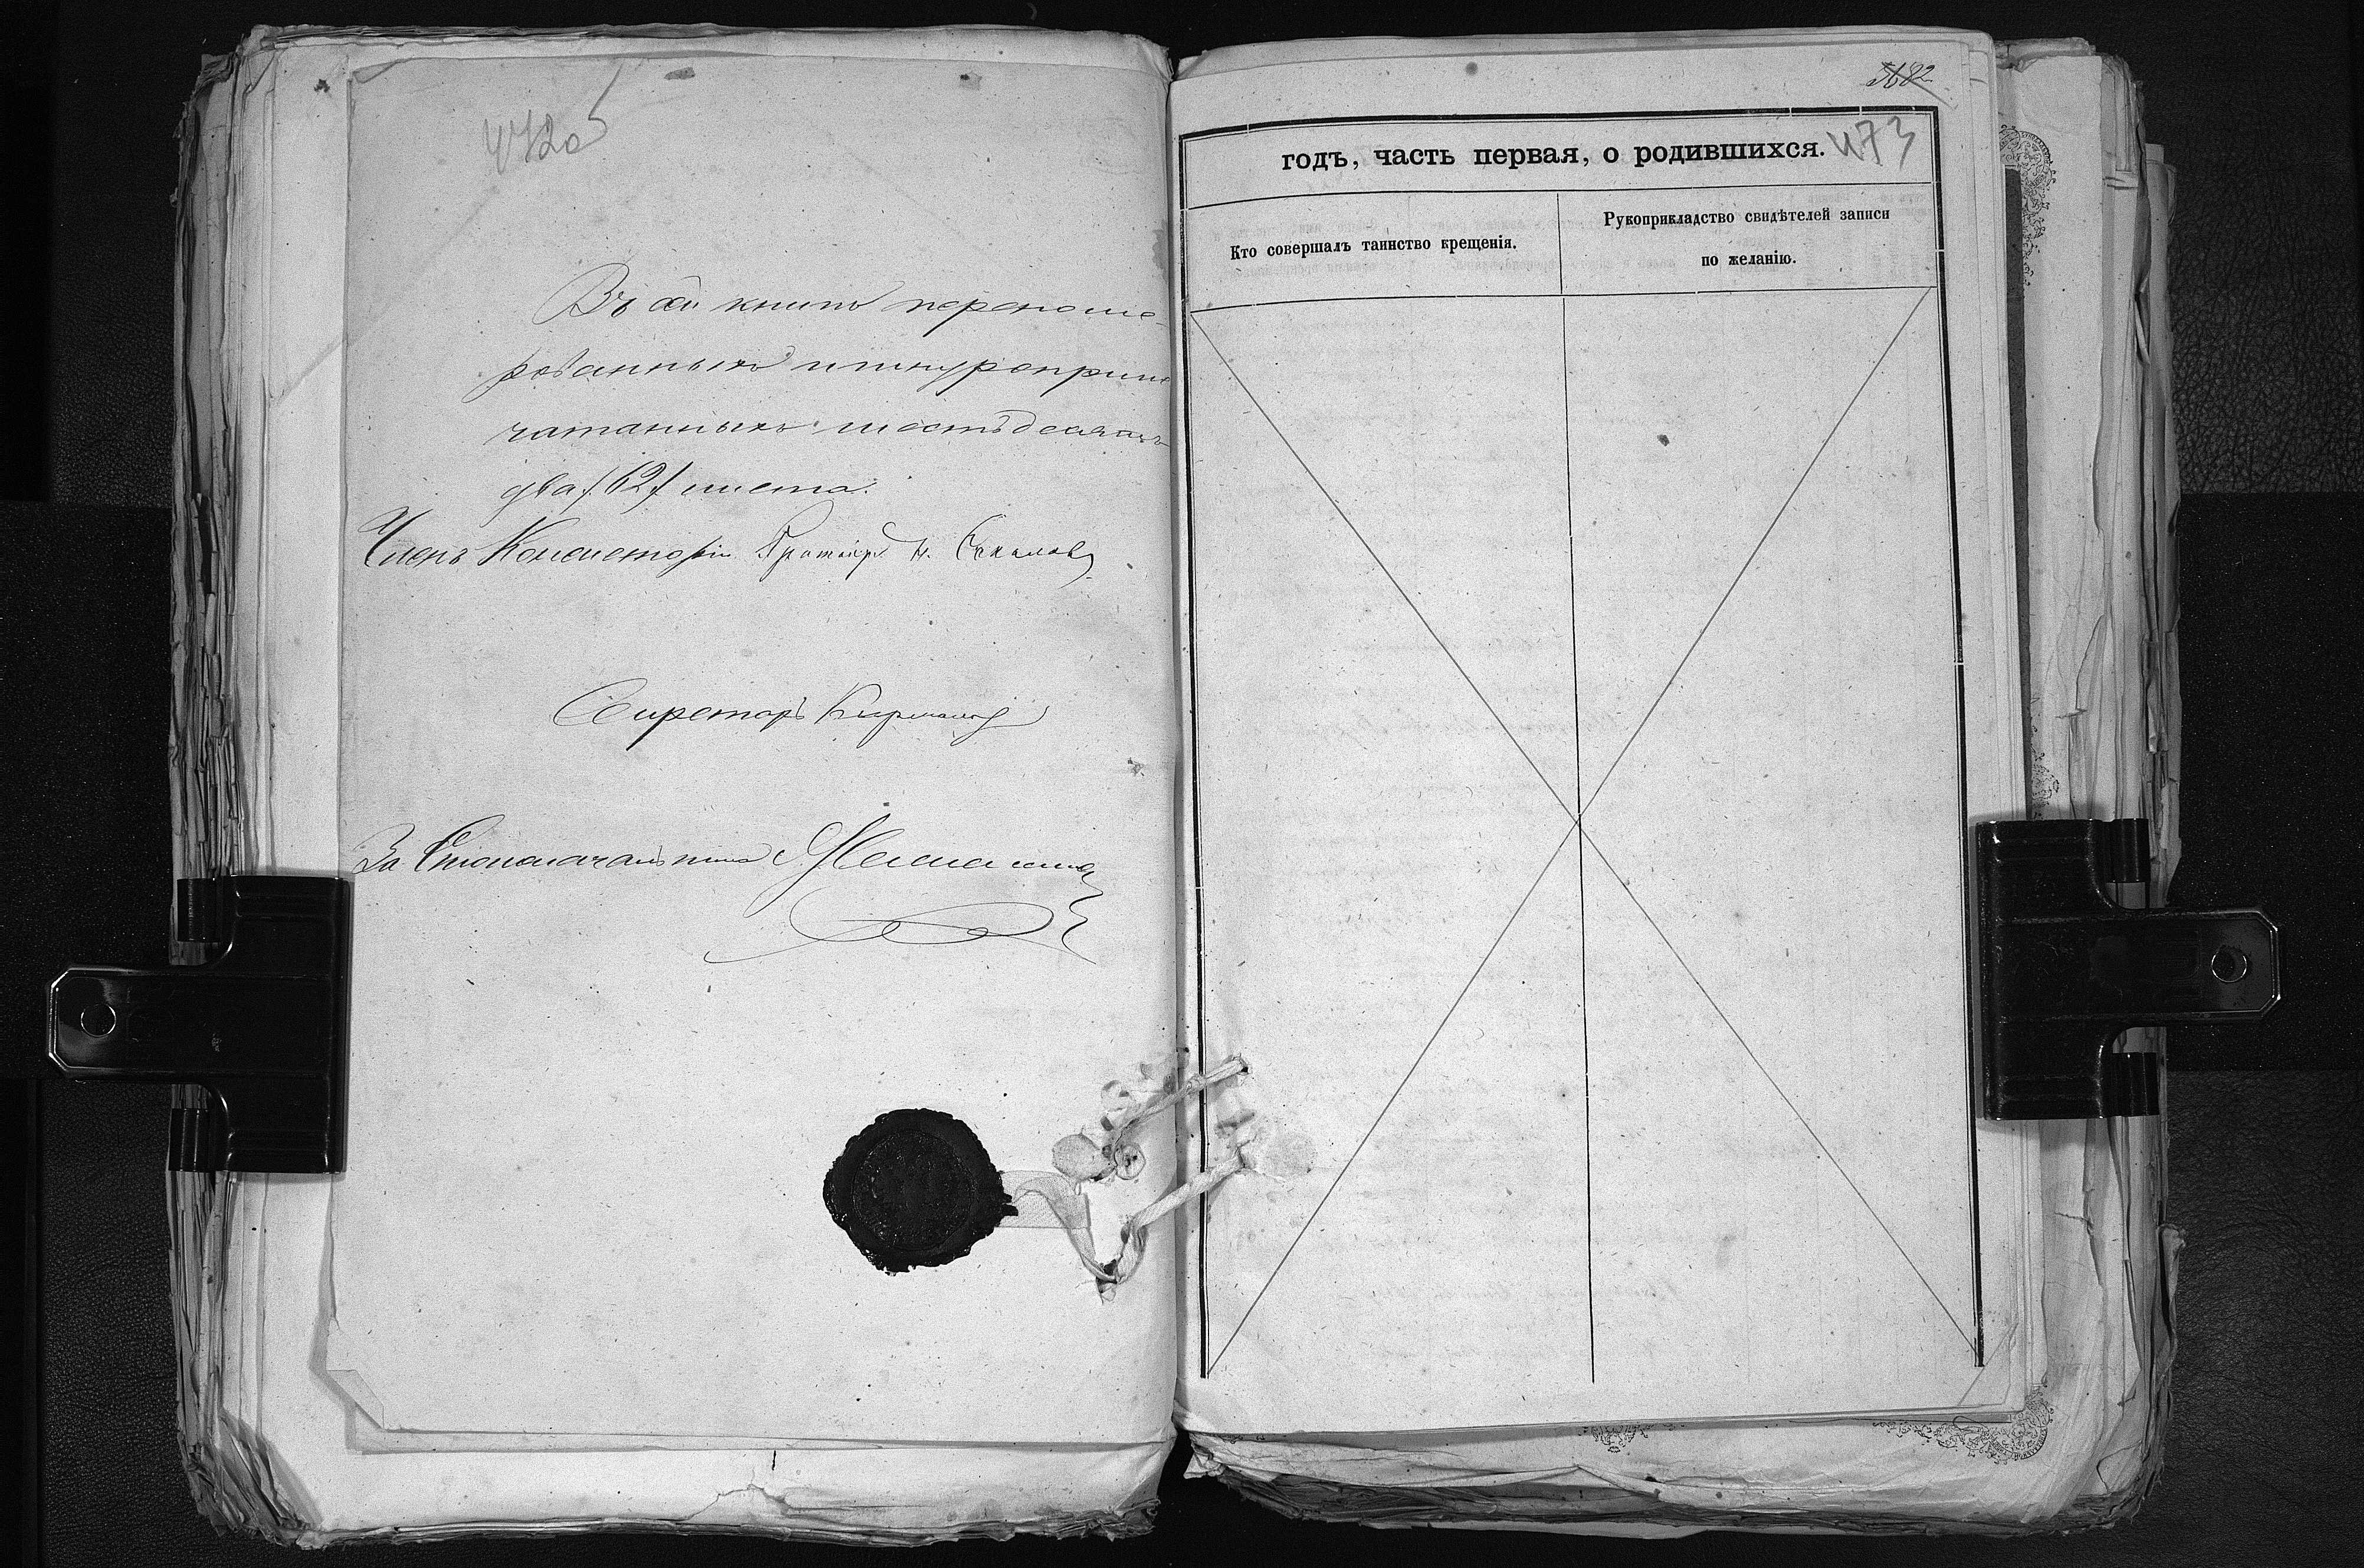 472об
Въ сей книгѣ перенуме-
рованныхъ и шнуроприпе
чатанныхъ шестьдесятъ
два /62/ листа.
Членъ Консисторіи Протоіерей Н.
Секретарь
За Столоначальника
473
годъ, часть первая, о родившихся.
Кто совершалъ таинство крещенія.
Рукоприкладство свидѣтелей записи
по желанію.